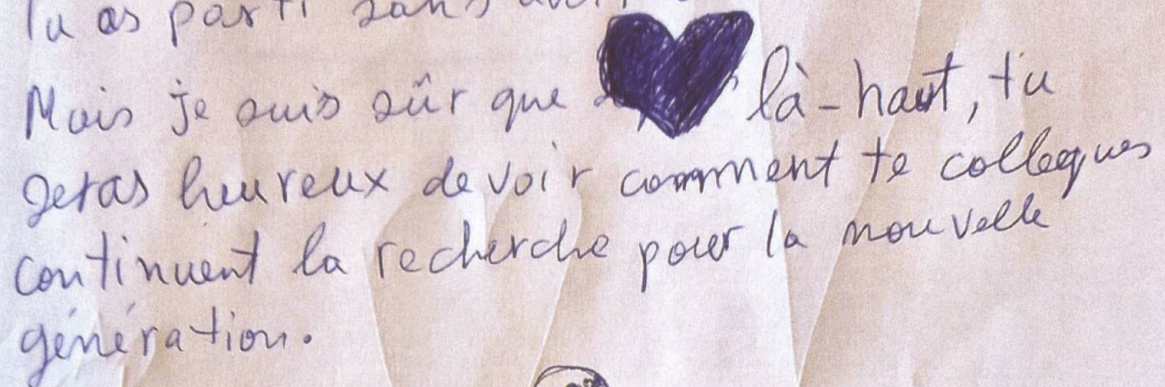 Tu as parti sans
Mais je suis sûr que là-haut, tu
seras heureux de voir comment te collegues
continuent la recherche pour la nouvelle
génération.